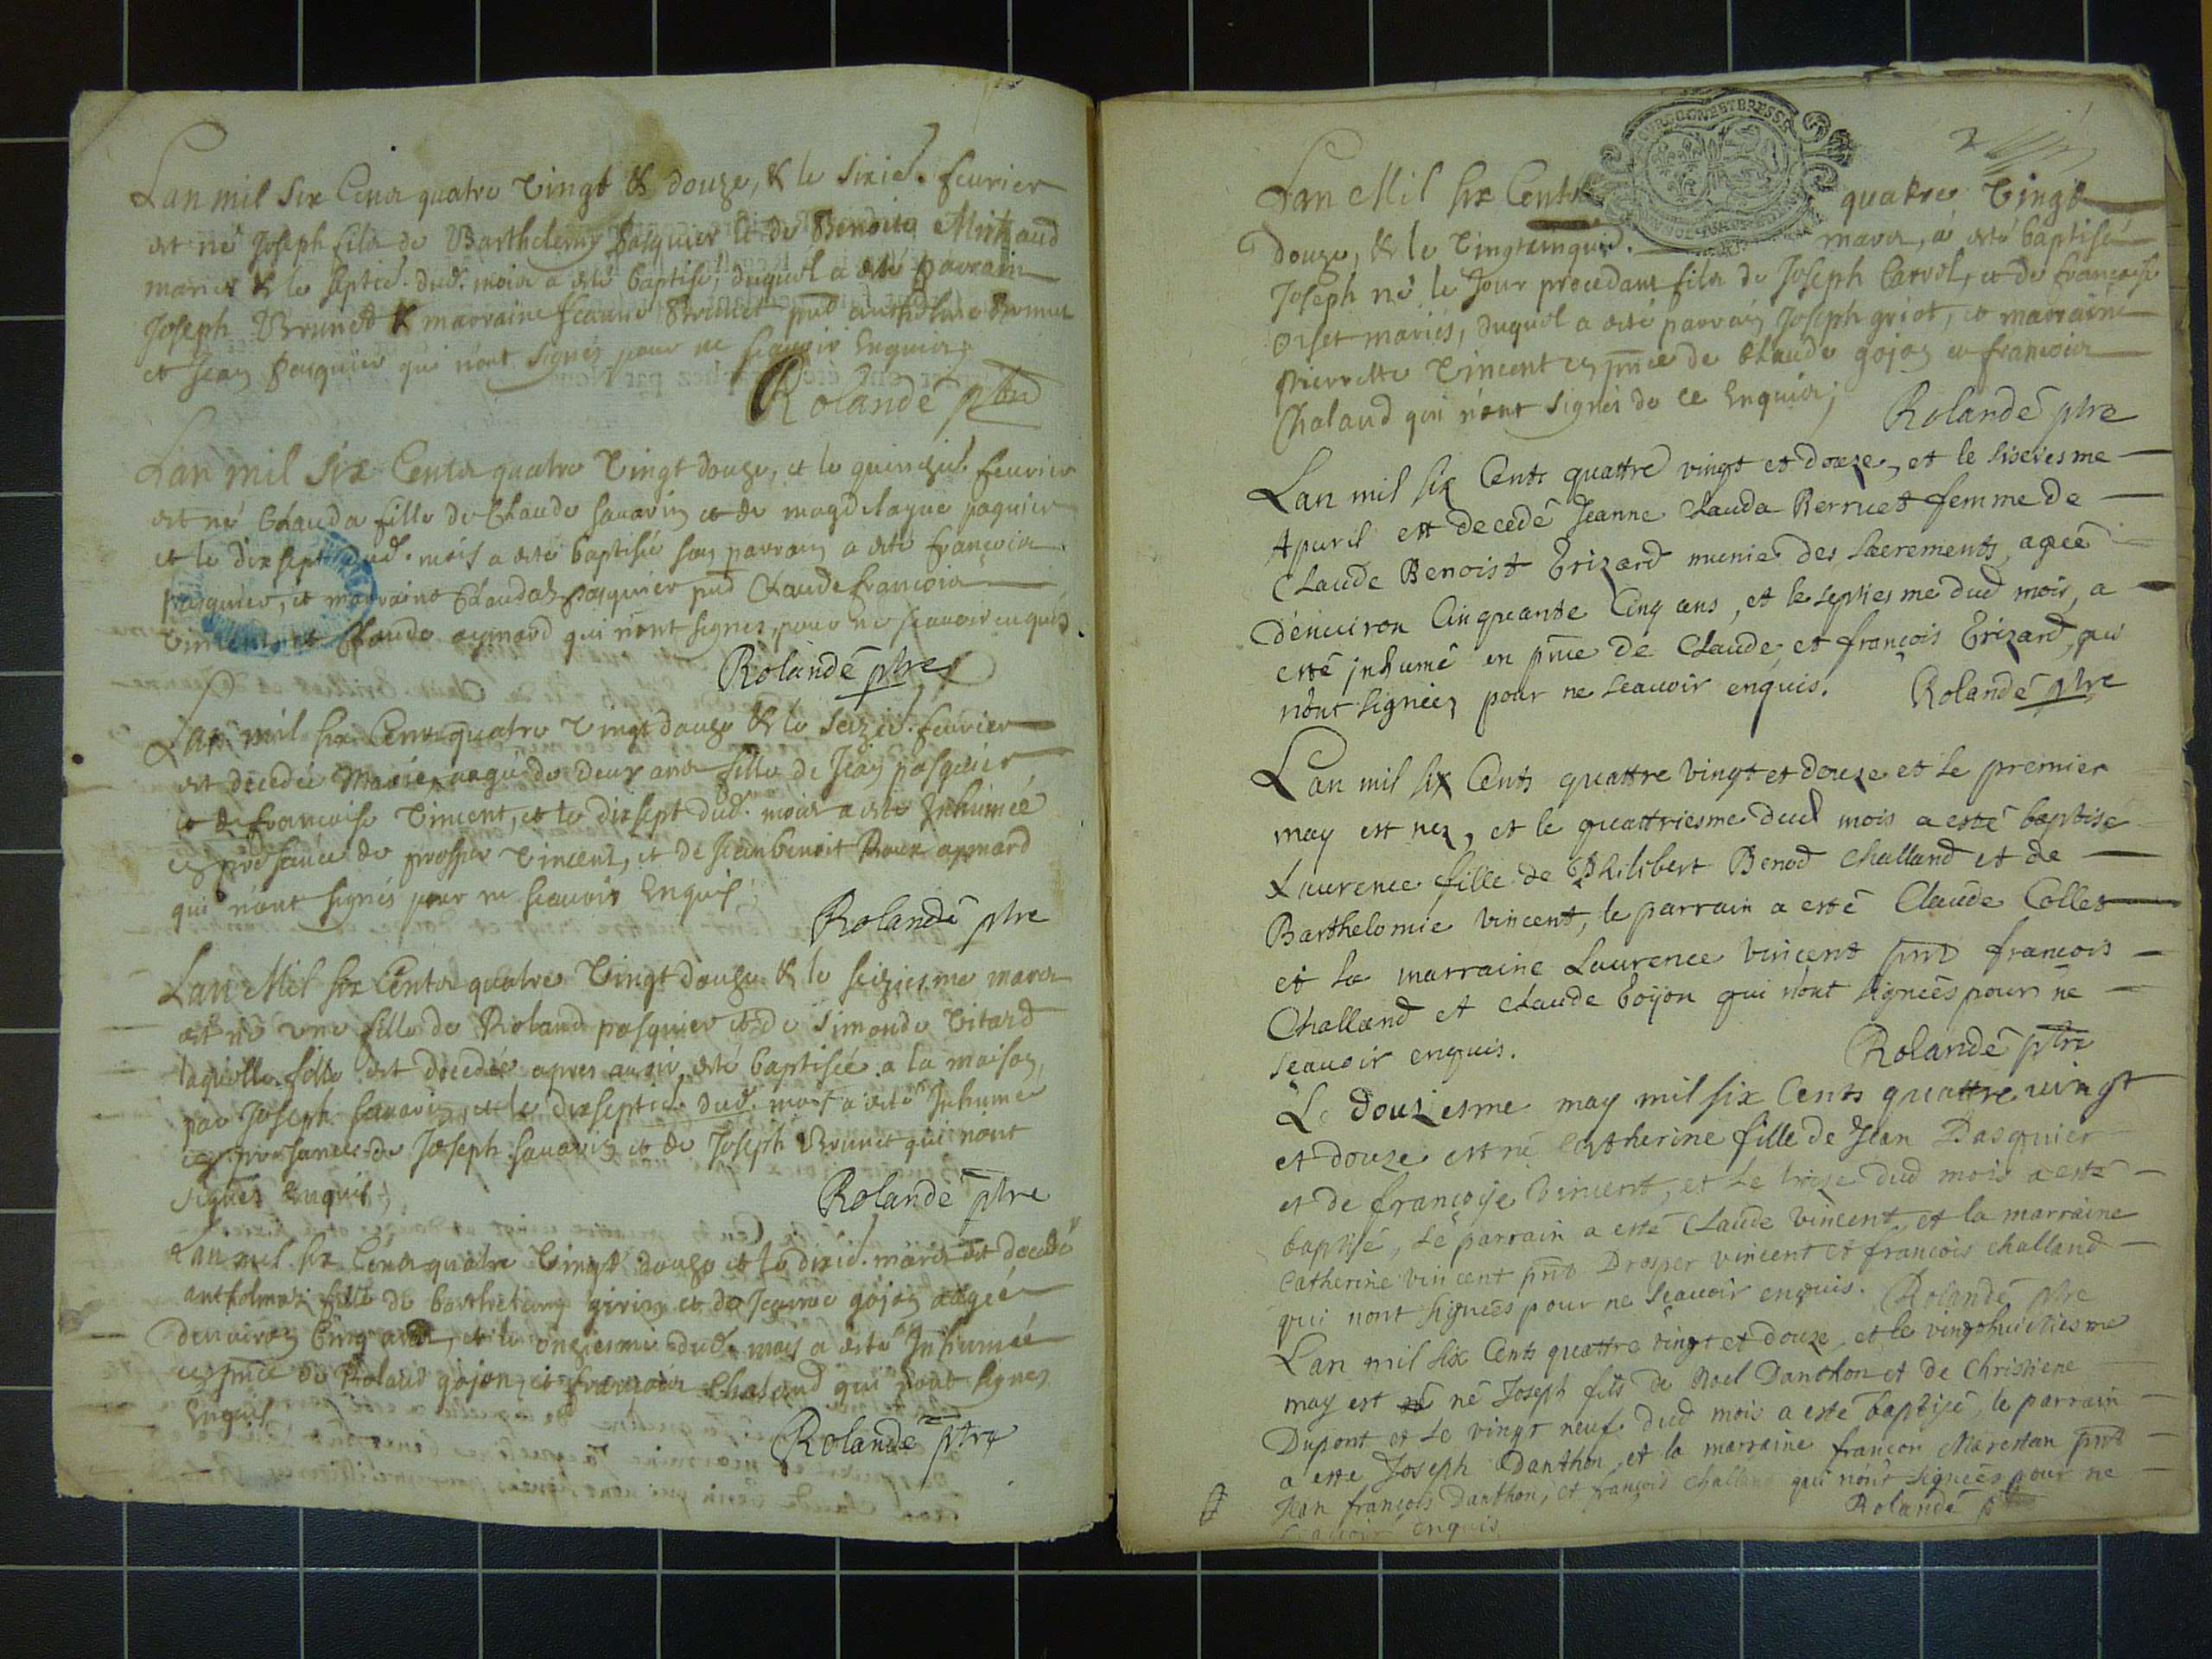 Lan mil six Cens quatre Vingt & douze, & le sixie. feurier
est né Joseph fils de Barthelemy pasquier et de Benoite Michaud
mariés & le septie. dud. mois a esté baptisé, duquel a esté parrain
Joseph Brunet & marraine Jeanne Brunet pnt anthelme Brunet
et Jean pasquier qui nont signés pour ne scauoir Enquis;
Rolandé ptre
Lan mil six Cents quatre Vingt douze, et le quinzie. feurier
est né Clauda fille de Claude sauarin et de magdelayne paquier
et le dix sept dud. mois a esté baptisée son parrain a esté francois
pasquier, et marraine Clauda pasquier pnt Claude francois
Vincent et Claude aymard qui nont signes, pour ne scauoir enquis
Rolandé ptre
Lan mil six Cens quatre Vingt douze & le seizie. feurier
est decedée Marie, aagé de deux ans fille de Jean pasquier
et de francoise Vincent, et le dixsept dud. mois a esté Inhumée
en presance de prosper Vincent, et de Jean benoit Roux aymard
qui nont signés pour ne scauoir Enquis;
Rolandé ptre
Lan Mil six Cents quatre Vingt douze & le seiziesme mars
est né une fille de Roland pasquier et de Simonde Vitard
laquelle fille est decedée apres auoir esté baptisée a la maison,
par Joseph sauarin, et le dixseptie. dud. mois a esté Inhumée
en presance de Joseph sauarin et de Joseph Brunet qui nont
signés Enquis;
Rolandé ptre
Lan mil six Cens quatre Vingt douze et le dixie. mars est decedé
fille de barthelemy et de Jeanne gojon aagée
denuiron Cinq ans, et le onziesme dud. mois a esté Inhumée
en pnce de Roland gojon, et francois Chaland qui nont signes
Enquis
Rolandé ptre
Lan Mil six Cents quatre Vingt
douze, & le Vingtcinquie. mars, a esté baptisé
Joseph né le Jour precedant fils de Joseph Carrel, et de francoise
orset mariés, duquel a esté parrain Joseph griot, et marraine
pierrette Vincent en pnce de Claude gojon et francois
Chaland qui nont signés de ce Enquis;
Rolandé ptre
Lan mil six Cents quattre vingt et douze, et le sixiesme
Apuril est decedé Jeanne Clauda Berruet femme de
Claude Benoist Trizard munie des sacrements agée
dénuiron Cinquante Cinq ans, et le septiesme dud mois, a
esté inhumé en pnce de Claude, et françois Trizard, qui
nont signeez pour ne scauoir enquis.
Rolandé ptre
Lan mil six Cents quattre vingt et douze et le premier
may est nez, et le quattriesme dud mois a esté baptisé
Laurence fille de Philibert Benod Challand et de
Barthelomie vincent, le parrain a esté Claude Collet
et la marraine Laurence vincent pnt francois
Challand et claude Goyon qui nont signées pour ne
scauoir enquis.
Rolandé ptre
Le douziesme may mil six Cents quattre uingt
et douze est né Catherine fille de Jean Pasquier
et de françoise vincent, et le treize dud mois a esté
baptisé, le parrain a esté Claude vincent, et la marraine
Catherine vincent pnt Prosper vincent et francois challand
qui nont signées pour ne scauoir enquis. Rolandé ptre
Lan mil six Cents quattre vingt et douze, et le vingthuictiesme
may est né Joseph fils de Roel Danthon et de Christiene
Dupont et le vingt neuf dud mois a esté baptisé, le parrain
a este Joseph Danthon, et la marraine françon Marestan pnt
Jean françois Danthon, et françois challand qui nont signées pour ne
scauoir enquis
Rolandé